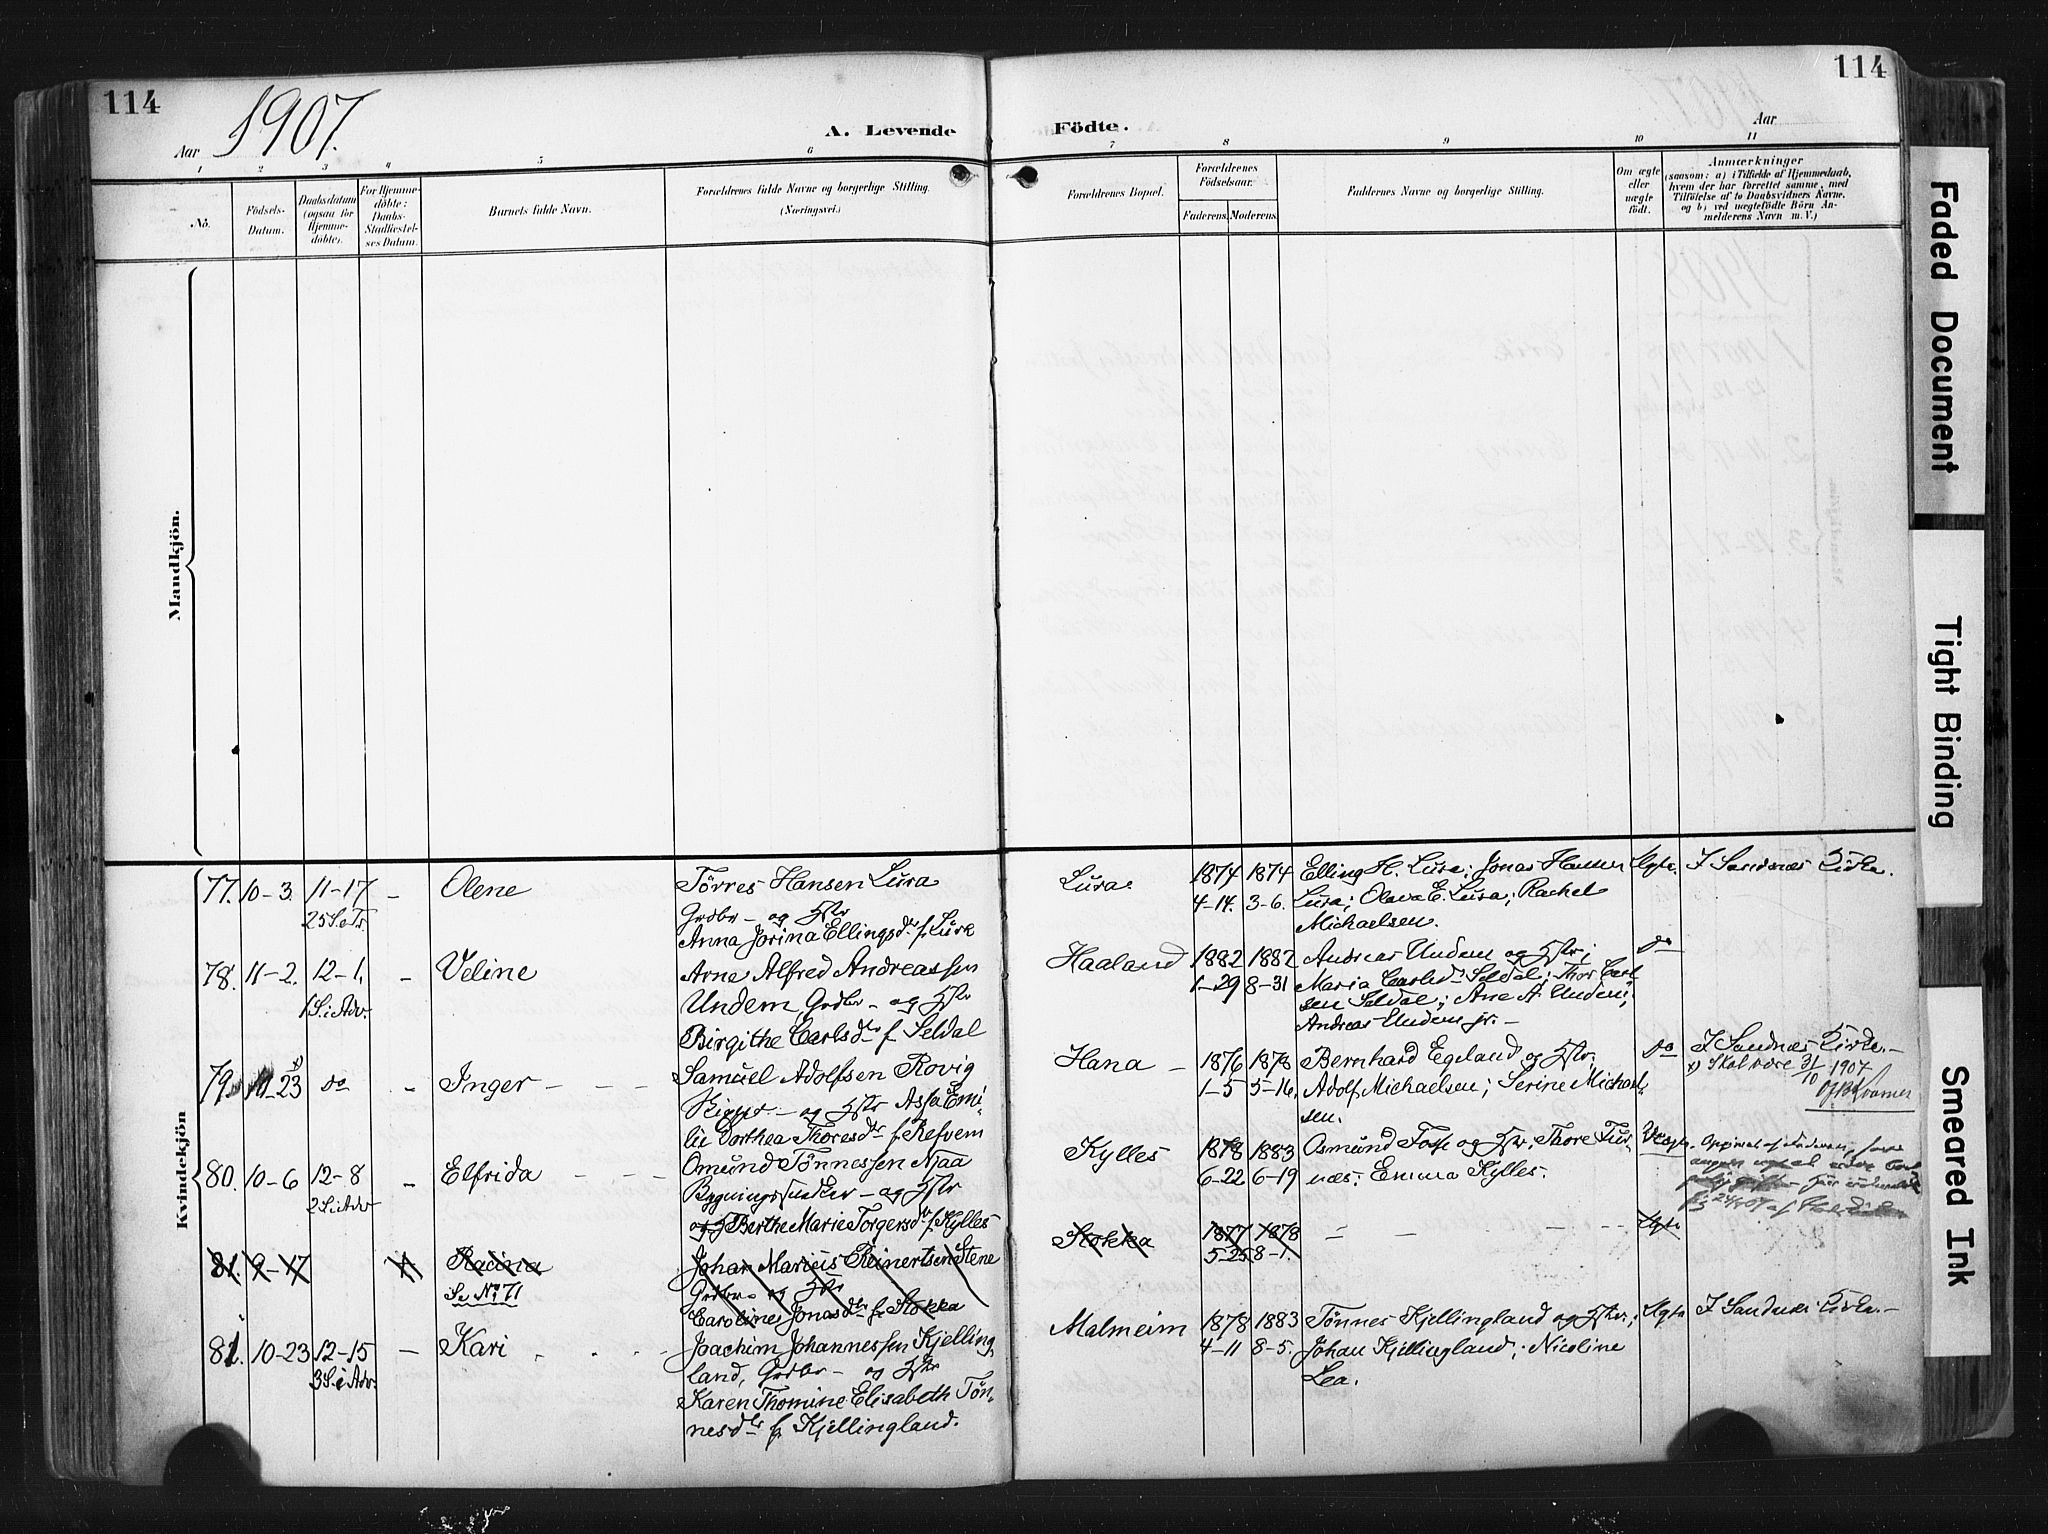 114
1907.
Aar
A. Levende
Födte.
Aar
114
1
2
3
4
5
6
7
8
9
10
11
No.
Födsels-
Datum.
Daabsdatum
(ogsaa for
Hjemme-
döbte).
For Hjemme-
döbte:
Daabs-
Stadfæstel-
ses Datum.
Barnets fulde Navn.
Forældrenes fulde Navne og borgerlige Stilling.
(Næringsvei.)
Forældrenes Bopæl.
Forældrenes
Födselsaar.
Faderens.
Moderens.
Faddernes Navne og borgerlige Stilling.
Om ægte
eller
uægte
födt.
Anmærkninger
(saasom: a) i Tilfælde af Hjemmedaab,
hvem der har forrettet samme, med
Tilföielse af to Daabsvidners Navne,
og b) ved uægtefödte Börn An-
melderens Navn m. V.)
Mandkjön.
Kvindekjön
77. 10-3. 11-17 - Olene
25 S.e.Tr.
Törres Hansen Lura
Grdbr - og Hstr
Anna Jorina Ellingsdr f. Lura
Lura
1874 1874
4-14. 3-6.
Elling H. Lura; Jonas Hansen
Lura; Olava E. Lura; Rachel
Michaelsen.
Ægte. I Sandnæs Kirke.
78. 11-2. 12-1. - Veline
1 S. i Adv.
Arne Alfred Andreassen
Undem, Grdbr - og Hstr
Birgithe Carlsdr f. Seldal
Haaland
1882 1882
1-29 8-31
Andreas Undem og Hstr;
Maria Carlsdr Seldal; Thor Carl-
sen Seldal; Ane A. Undem;
Andreas Undem jr. -
do
79. 11-23 x) do - Inger - - -
Samuel Adolfsen Rovig
Skipper - og Hstr Assa Emi-
lie Dorthea Thoresdr f. Refvem
Hana -
1876 1878
1-5 5-16.
Bernhard Egeland og Hstr;
Adolf Michaelsen; Serine Michael-
sen.
do I Sandnæs Kirke. -
x) Skal være 31/10 1907
80. 10-6 12-8 - Elfrida - - -
2 S. i Adv
Omund Tönnessen Njaa
Bygningssnedker - og Hstr
og Berthe Marie Torgersdr f. Kylles
Kylles
1878 1883
6-22 6-19
Osmund Foss og Hstr; Thore Tur-
næs; Emma Kylles.
Uægte.
81. 9-17 Racina
Se No 71
Johan Marius Reinertsen Stene
Grdbr - og Hstr
Caroline Jonasdr f. Stokka
Stokka
1877 1878
5-25 8-1.
- - - - -
Ægte
81. 10-23 12-15 - Kari
3 S. i Adv.
Joachim Johannessen Kjelling
land, Grdbr - og Hstr
Karen Thomine Elisabeth Tön-
nesdr f. Kjellingland.
Malmeim
1878 1883
4-11 8-5.
Tönnes Kjellingland og Hstr;
Johan Kjellingland; Nicoline
Lea.
Ægte I Sandnæs Kirke. -
Faded Document
Tight Binding
Smeared Ink